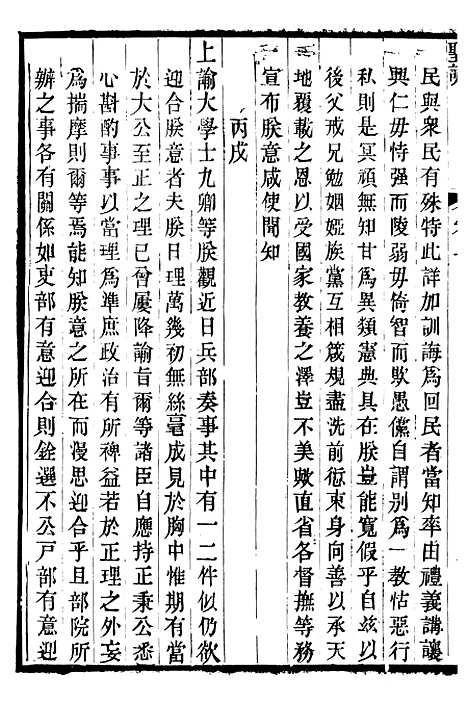 聖訓
民與衆民有殊特此詳加訓誨爲回民者當知率由禮義講讓
興仁毋恃强而陵弱毋倚智而欺愚儻自謂别爲一教怙惡行
私則是冥頑無知甘爲異類憲典具在朕豈能寬假乎自兹以
後父戒兄勉姻婭族黨互相箴規盡洗前愆束身向善以承天
地覆載之恩以受國家教養之澤豈不美歟直省各督撫等務
宣布朕意咸使聞知
丙戌
上諭大學士九卿等朕觀近日兵部奏事其中有一二件似仍欲
迎合朕意者夫朕日理萬幾初無絲毫成見於胸中惟期有當
於大公至正之理已曾屢降諭旨爾等諸臣自應持正秉公悉
心斟酌事事以當理爲準庶政治有所裨益若於正理之外妄
爲揣摩則爾等焉能知朕意之所在而漫思迎合乎且部院所
辦之事各有關係如吏部有意迎合則銓選不公戸部有意迎